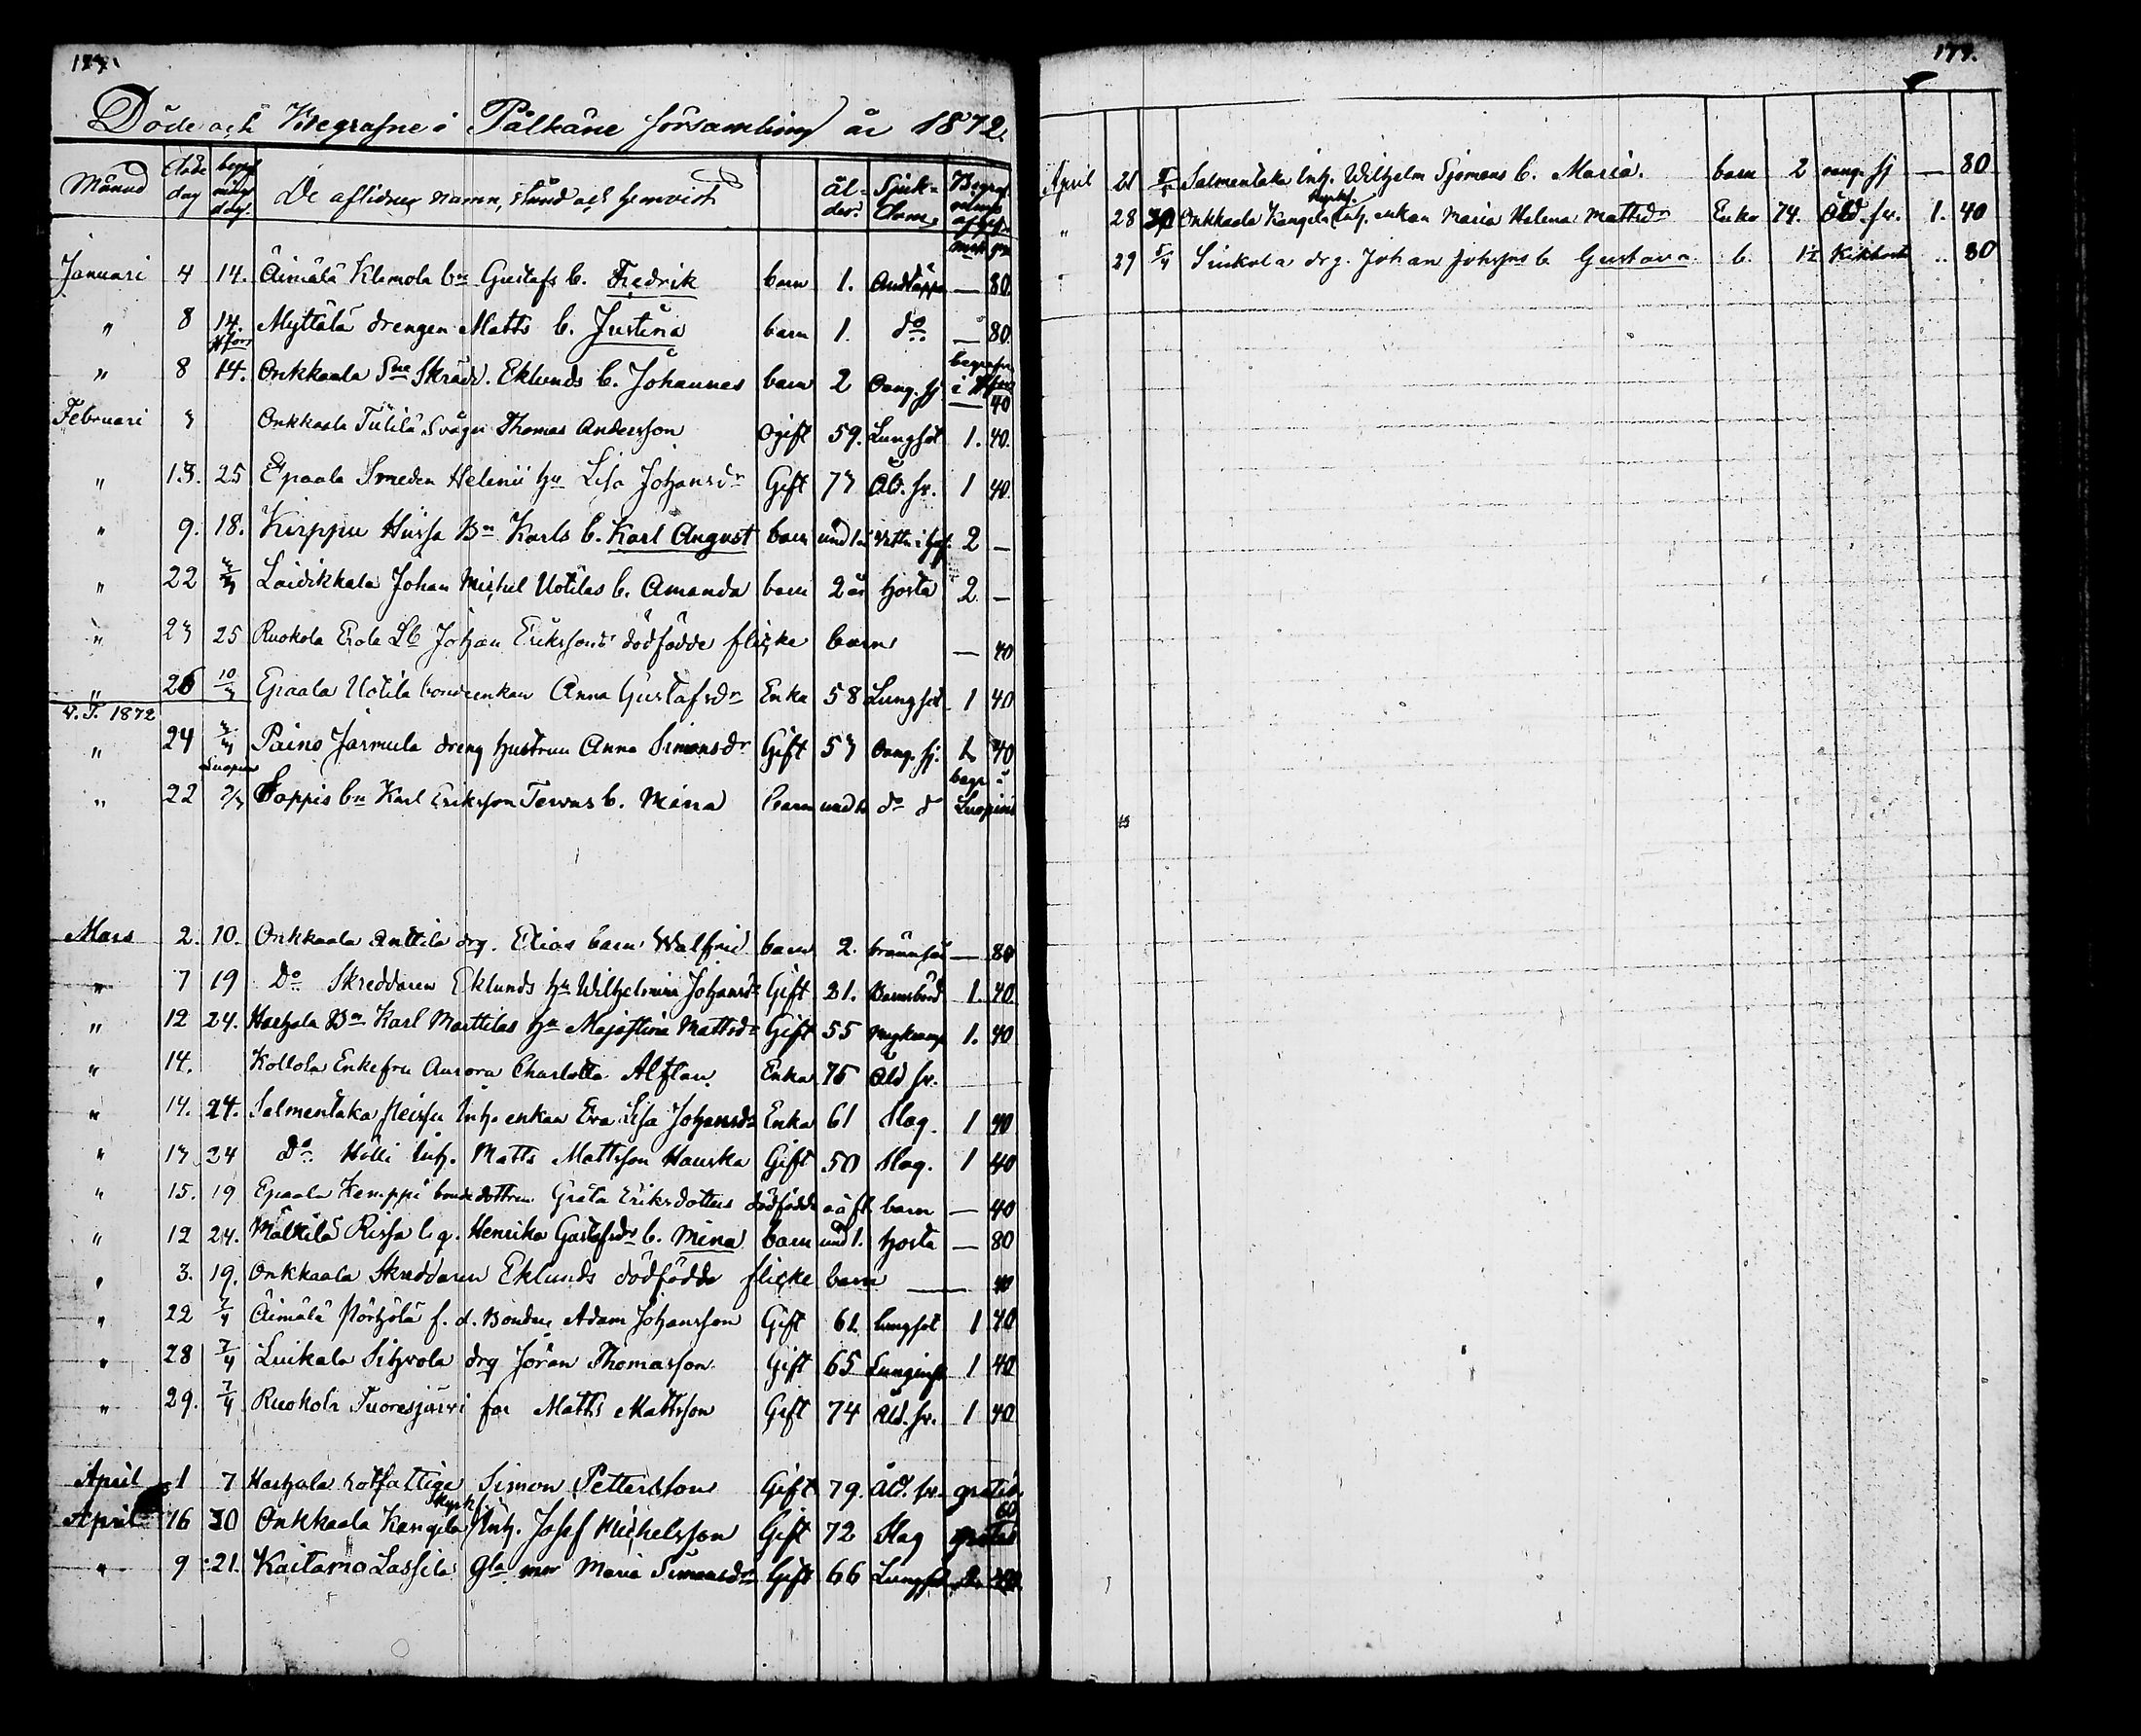 177.
Döde och Begrafne i Pälkäne församling år 1872.
Månad döde dag begrafnings dag. De aflidnes namn, stånd och hemvist ålder Sjukdom Begrafnings afgift
mk pi
Januari 4 14. Äimälä Klemola bn Gustafs b. Fredrik barn 1. Andtäppa — 80.
" 8 14. Myttälä drengen Matts b. Justina barn 1. do — 80.
" 8 14. Onkkaala Sne Skrädd. Eklunds b. Johannes barn 2 Oang. sj. begrafven i — 40
Februari 3 Onkkaala Tülilä Svåger Thomas Andersson Ogift 59. Lungsot 1. 40.
" 13. 25 Epaala Smeden Helenii hu Lisa Johansdr Gift 77 Åld. sv. 1 40.
" 9. 18. Kirppu Hüssa Bn Karls b. Karl August barn und 1 år 2 —
" 22 3/3 Laidikkala Johan Michel Uotilas b. Amanda barn 2 år hosta 2. —
" 23 25 Ruokola Erola Lb Johan Erikssons dödfödde flicke barn — 40
" 26 10/3 Epaala Uotila bondeenkan Anna Gustafsdr Enka 58 Lungsot 1 40
V.T. 1872
" 24 3/3 Paino Jarmula dreng hustrun Anna Simonsdr Gift 53 Oang. sj. 1. 40
Luopiois
" 22 3/3 Pappis bn Karl Eriksson Tervas b. Mina barn und 1 do do begr. i Luopiois
Mars 2. 10. Onkkaala Anttila drg. Elias barn Walfrid barn 2. brännsår — 80
" 7 19 Do Skreddaren Eklunds hu Wilhelmina Johansdr Gift 21. Barnsbörd 1. 40.
" 12 24. Harhala Bn Karl Marttilas hu Maja Stina Mattsdr Gift 55 1. 40
" 14. Kollola Enkefru Aurora Charlotta Alftan Enka 75 Åld sv.
" 14. 24. Salmentaka Neissu Inh. enkan Eva Lisa Johansdr Enka 61 Slag. 1 40
" 17. 24 Do Hilli Inh. Matts Mattsson Hauska Gift 50 Slag. 1 40
" 15. 19 Epaala Kemppi bonde dottren Greta Eriksdotters dödfödde o ä fl. barn — 40
" 12 24. Mälkilä Rissa lig. Henrika Gustafsdr b. Mina barn und 1. hosta — 80
" 3. 19. Onkkaala Skreddaren Eklunds dödfödde flicke barn — 40
" 22 7/4 Äimälä Pörhölä f. d. Bonden Adam Johansson Gift 61. lungsot 1 40
" 28 7/4 Luikala Sihvola drg Jöran Thomasson Gift 65 Lunginfl. 1 40
" 29. 7/4 Ruokola Tuoresjärvi far Matts Mattsson Gift 74 Åld. sv. 1 40
April 1 7 Harhala rotfattige Simon Pettersson Gift 79. Åld. sv. gratis
April 16 30 Onkkaala Kangela Kyrk. Inh. Josef Michelsson Gift 72 Slag gratis 60
" 9 21. Kaitamo Lassila Gla mor Maria Simonsdr Gift 66 Lungsot
177.
April 21 5/5 Salmentaka Inh. Wilhelm Sjömans b. Maria. barn 2 oang. sj — 80
" 28 30 Onkkaala Kangela Kyrk. Inh. enkan Maria Helena Mattsdr Enka 74. Åld. sv. 1. 40
" 29 5/4 Sinkola drg. Johan Johssons b Gustava b. 1½ Kikhosta .. 80